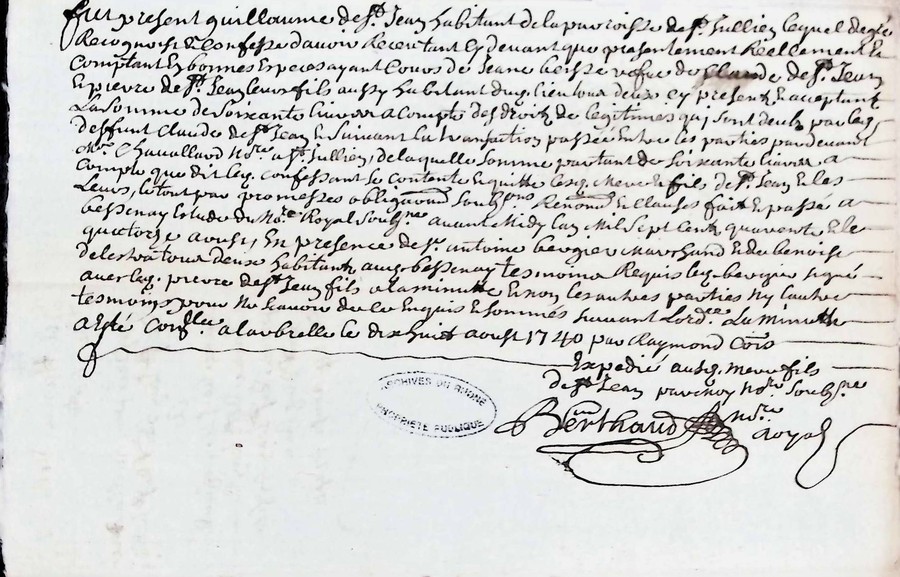 fut present guillaume de St Jean habitant de la parroisse de St Jullien lequel de gré
Recognoist Et confesse d'avoir Receu tant Cy devant que presentement Reellement Et
Comptant En bonnes Especes ayant Cours de Jeane vefve de Claude de St Jean
Et pierre de St Jean leur fils aussy habitant dud. lieu tous deux Cy present Et acceptant
La Somme de Soixante livres a Compte des droits de legitimes qui sont deub par led.
deffunt Claude de St Jean Et Suivant la transaction passée Entre les parties pardevant
Me Chavallard Nore a St Jullien, de laquelle Somme partant de Soixante livres a
Compte que dit led. Confessant se contente Et quitte lesd. Mere Et fils de St Jean Et les
Leurs, le tout par promesses obligaons Soubzons Renonons Et Clauses fait Et passé a
bessenay Estude du Nore Royal Soubsne avant Midy l'an Mil Sept Cent quarente Et le
quatorze aoust, En presence de Sr antoine bergier Marchand Et de benoist
tous deux habitants aud. bessenay tesmoins Requis led. bergier signé
avec led. pierre de St Jean fils a la minutte Et non les autres parties Ny l'autre
tesmoins pour Ne Scavoir de ce Enquis Et Sommés Suivant Lordce La Minutte
a Esté Conllee a Larbrelle le dix huit aoust 1740 par Raymond Coms
Expedié ausd. mere Et fils
de St Jean par moy Nore Soubsne
Berthaud nore
Royal
ARCHIVES DU RHONE
PROPRIÉTÉ PUBLIQUE